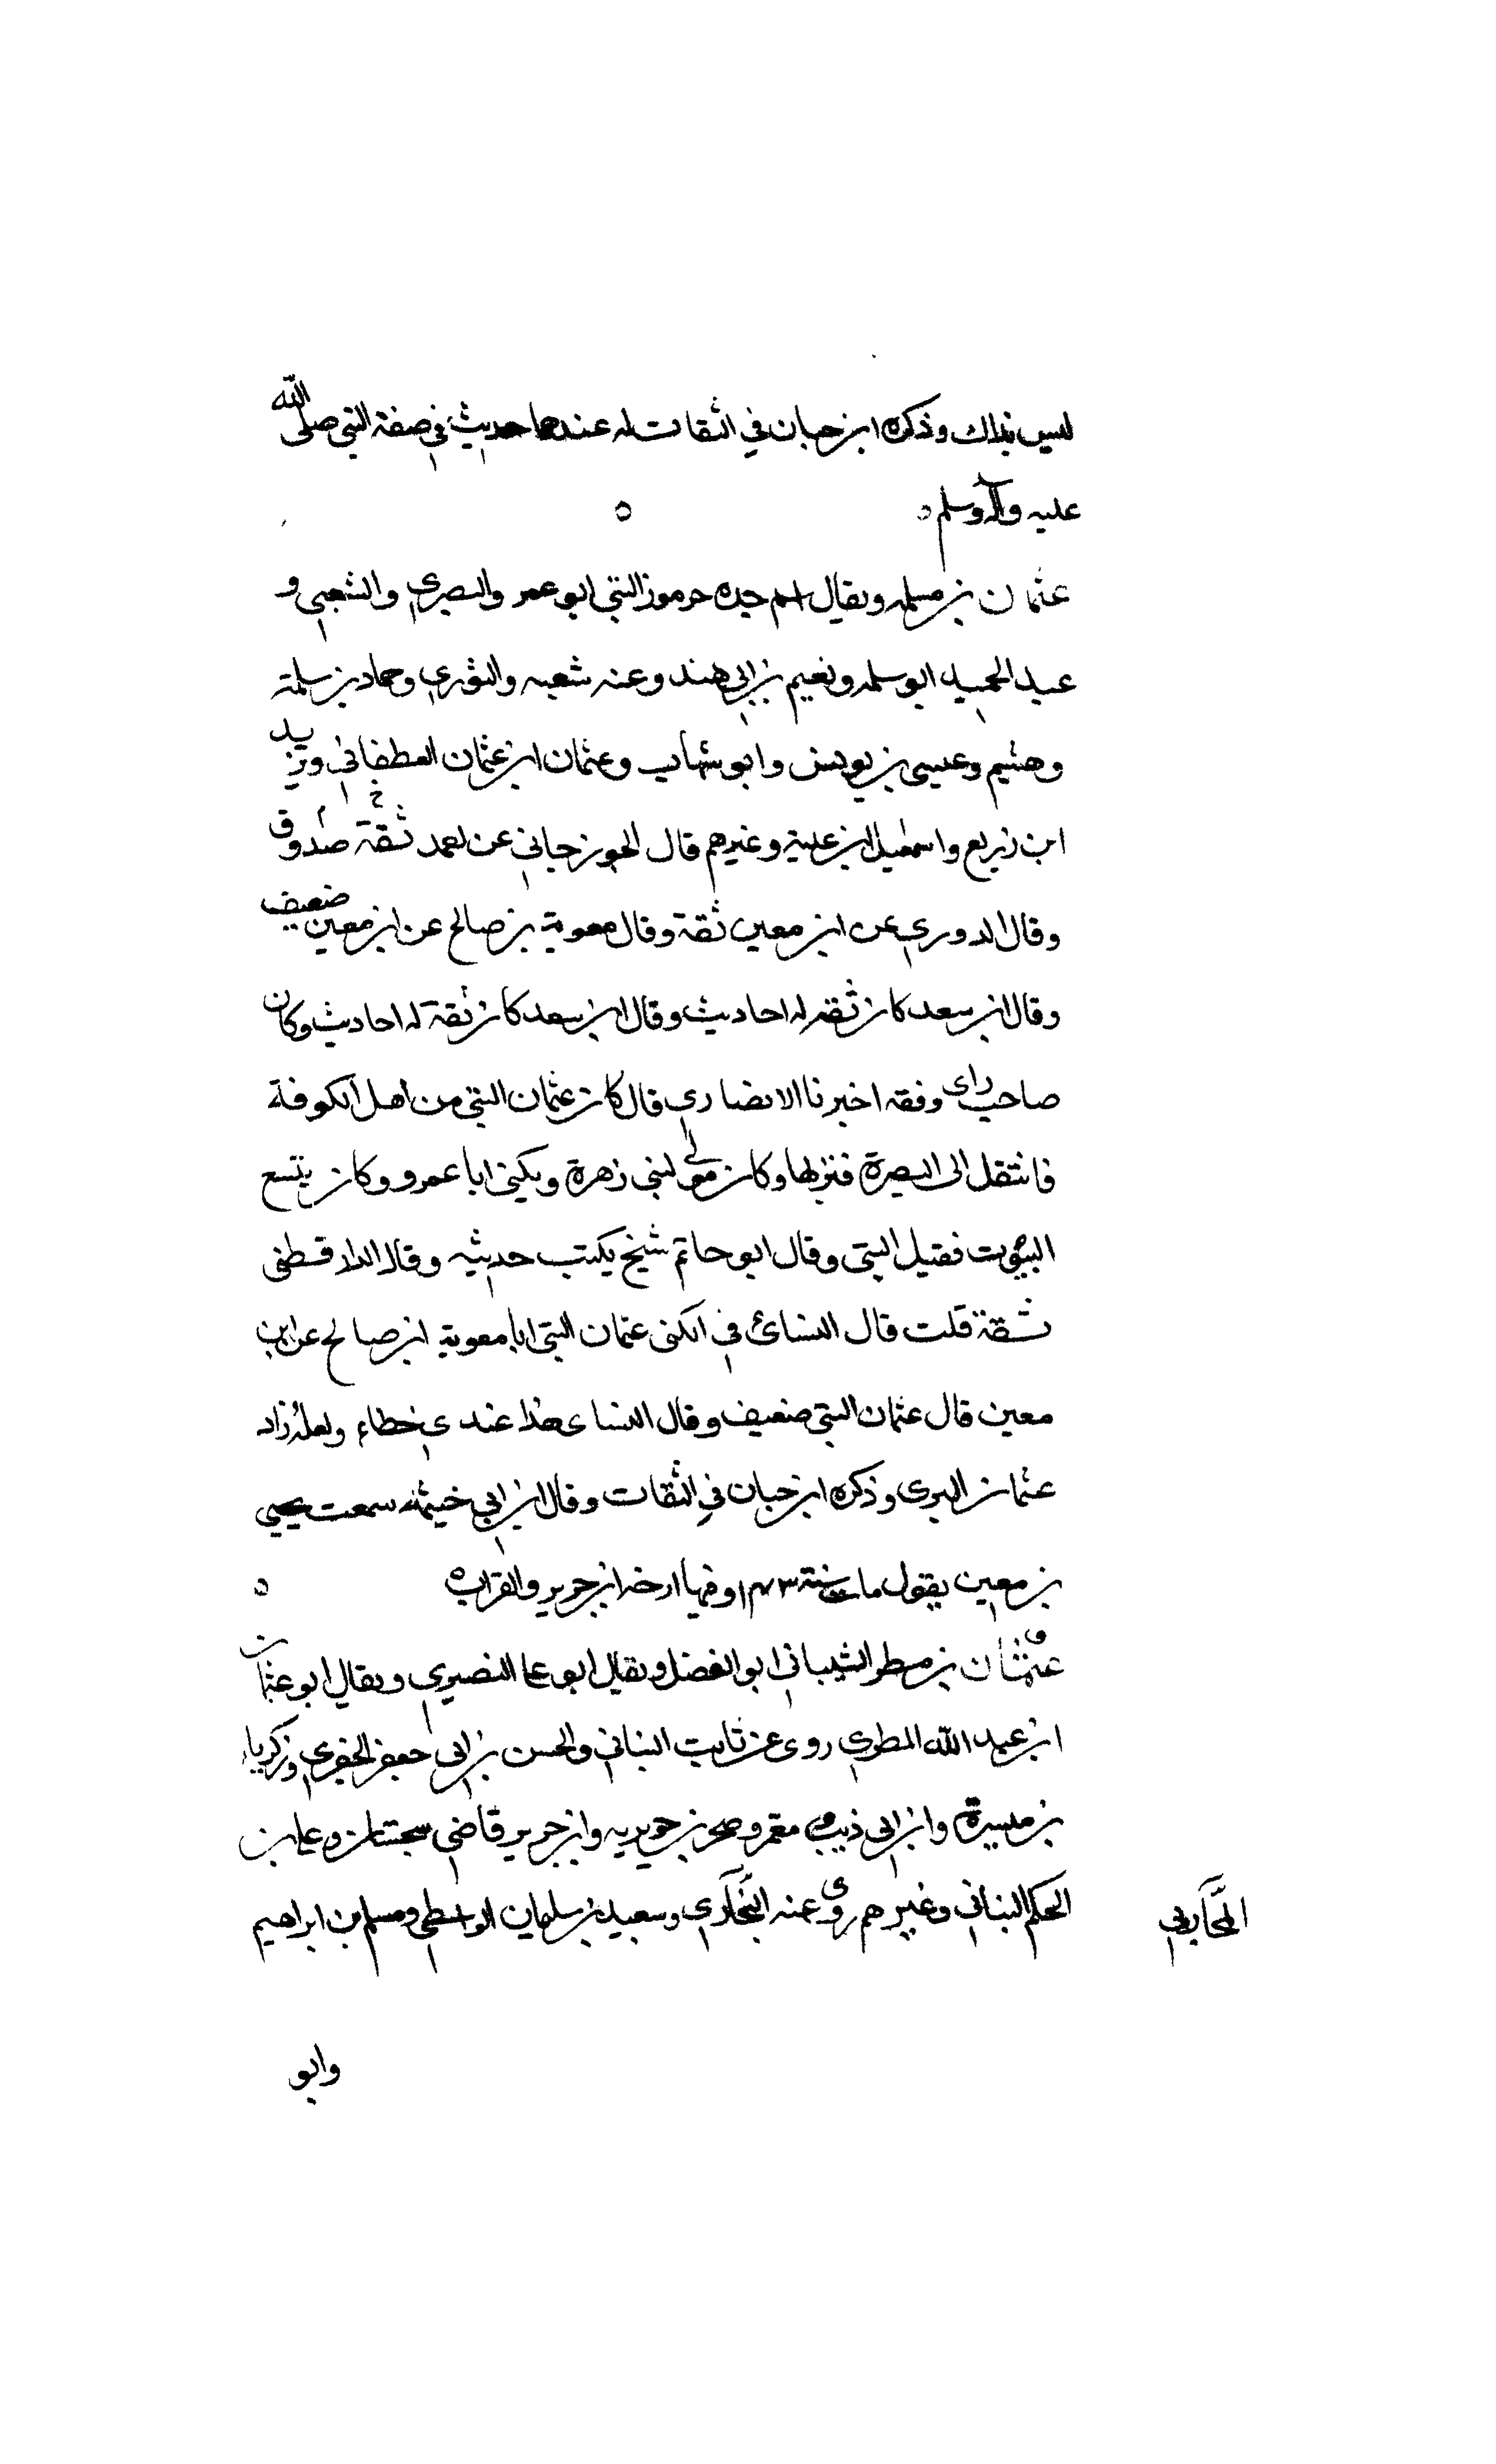 ليس بذاك وذكره ابن حبان في الثقات له عندهما حديث في صفة النبي صلى الله
عليه وآله وسلم
عثمان بن مسلم ويقال اسم جده هرموز البتي ابو عمر والبصري والشعبي و
عبد الحميد ابو سلمه ونعيم بن ابي هند وعنه شعبه والثوري وحماد بن سلمة
وهشيم وعيسى بن يونس وابو شهاب وعثمان ابن عثمان الغطفاني ويزيد
ابن زريع واسمعيل ابن علية وغيرهم قال الجوزجاني عن احمد ثقة صدوق
وقال الدوري عن ابن معين ثقة وقال معوية بن صالح عن ابن معين ضعيف
وقال ابن سعد كان ثقه له احاديث وقال ابن سعد كان ثقة له احاديث وكان
صاحب راى وفقه اخبرنا الانصاري قال كان عثمان البتي من اهل الكوفة
فانتقل الى البصرة فنزلها وكان مولى لبني زهرة ويكنى ابا عمرو وكان يتسع
البيوت فقيل البتى وقال ابو حاتم شيخ يكتب حديثه وقال الدارقسطنى
ثقة قلت قال النسائ في الكنى عثمان البتى ابا معوية ابن صالح عن ابن
معين قال عثمان البتي ضعيف وقال النساى هذا عندي خطاء ولعله زاد
عثمان البرى وذكره ابن حبان في الثقات وقال ابن ابي خيثمه سمعت يحيى
بن معين يقول مات سنة ١٤٣ وفيها ارخه ابن جرير والقراب
عثمان بن مطر الشيباني ابو الفضل ويقال ابو عا النصيري ويقال ابو عثمان
ابن عبد الله المطري روى عن ثابت البناني والحسن بن ابى جعفر الجفري وزكرياء
بن ميسرة وابن ابى ذيب معمر وصخر بن جويريه وابن جرير قاضي سجستان وعلي بن
الحكم البناني وغيرهم روى عنه البخاري وسعيد بن سليمان الواسطي ومسلم بن ابراهيم
المحاربي
وابو